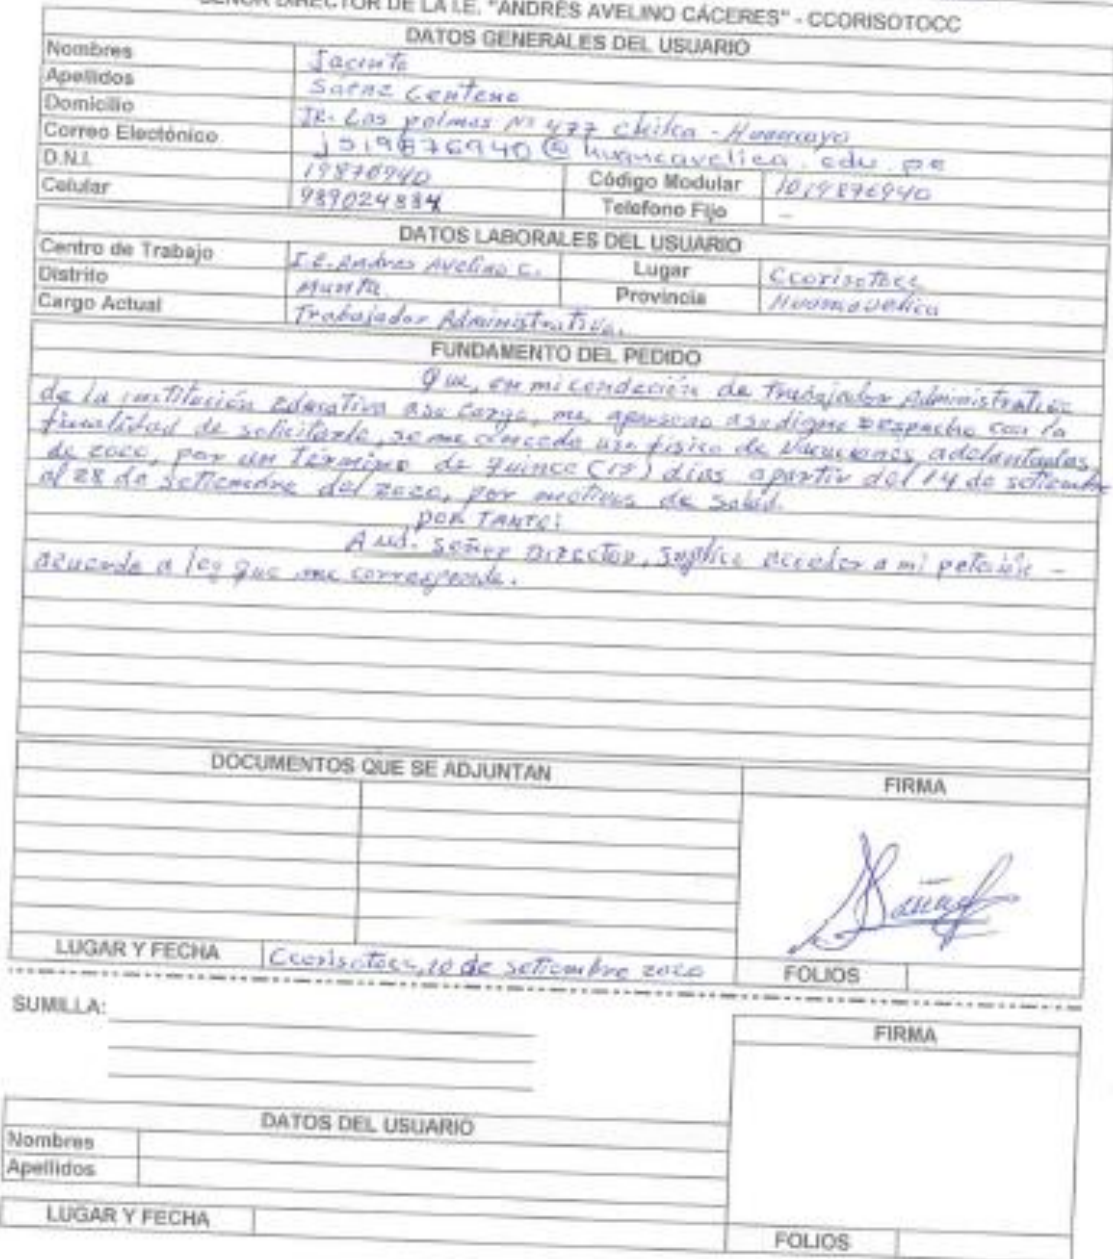 SEÑOR DIRECTOR DE LA I.E. "ANDRÉS AVELINO CÁCERES" - CCORISOTOCC
DATOS GENERALES DEL USUARIO
Nombres Jacinto
Apellidos Saenz Centeno
Domicilio JR. Los palmas Nº 477 Chilca - Huancayo
Correo Electónico j519876940@huancavelica.edu.pe
D.N.I. 19876940 Código Modular 1019876940
Celular 989024884 Telefono Fijo -
DATOS LABORALES DEL USUARIO
Centro de Trabajo I.E. Andres Avelino C. Lugar Ccorisotocc
Distrito Provincia Huancavelica
Cargo Actual Trabajador Administrativo.
FUNDAMENTO DEL PEDIDO
Que, en mi condición de Trabajador Administrativo
de la institución Educativa asu cargo, me apersono asudigno Despacho con la
finalidad de solicitarle, se me conceda uso fisico de Vacaciones adelantadas,
de 2020, por un Término de quince (15) dias apartir del 14 de setiembre
al 28 de setiembre del 2020, por motivos de salud.
POR TANTO:
A ud. Señor DIRECTOR, Suplico acceder a mi petición -
acuerdo a ley que me corresponde.
DOCUMENTOS QUE SE ADJUNTAN FIRMA
LUGAR Y FECHA Ccorisotocc, 10 de setiembre 2020 FOLIOS
SUMILLA:
FIRMA
DATOS DEL USUARIO
Nombres
Apellidos
LUGAR Y FECHA
FOLIOS